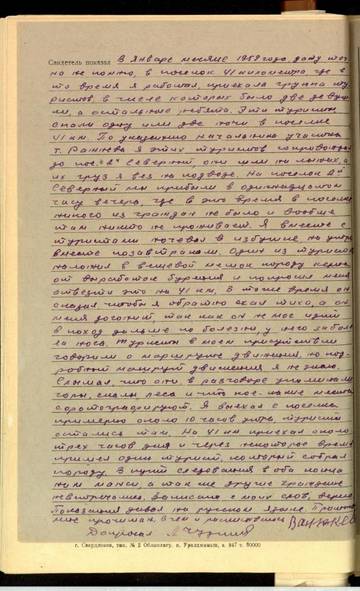 Свидетель показал В январе месяце 1959 года дату точ-
но не помню, в поселок 41 километра где в
это время я работал, приехала группа ту-
ристов, в числе которых было две девуш-
ки, а остальные ребята. Эти туристы
спали одну ночь в поселке
41 км. По указанию начальника участка
т. Ражнева я этих туристов сопровождал
до пос. 2й Северный, они шли на лыжах, а
их груз я вез на подводе. На поселок 2й
Северный мы прибыли в одинадцатом
часу вечера, где в это время в поселке
никого из граждан не было и вообще
там никто не проживает. Я вместе с
туристами ночевал в избушке, на утро
вместе позавтракали. Один из туристов
наложил в вещевой мешок породу
от выработок бурения и попросил меня
отвезти это на 41 км. В тоже время он
сказал чтобы я обратно ехал тихо, а он
меня догонит так как он не мог идти
в поход дальше по болезни, у него заболе-
ла нога. Туристы в моем присутствии
говорили о маршруте движения, но под-
робный маршрут движения я не знаю.
Слышал, что они в разговоре упоминали
горы, скалы, леса и что
сфотографируют. Я выехал с поселка
примерно около 10 часов утра, туристы
остались там. На 41 км приехал около
трех часов дня и через некоторое время
пришел один турист, который собрал
породу. В пути следования в оба конца
ни манси, а так же другие граждане
не встречались. Записано с моих слов, верно
Показания давал на русском языке
мне прочитан, в чем и расписываюсь
Допросил
г. Свердловск, тип. № 2 Облполигр. п. Уралмашзав. з. 847 т. 50000